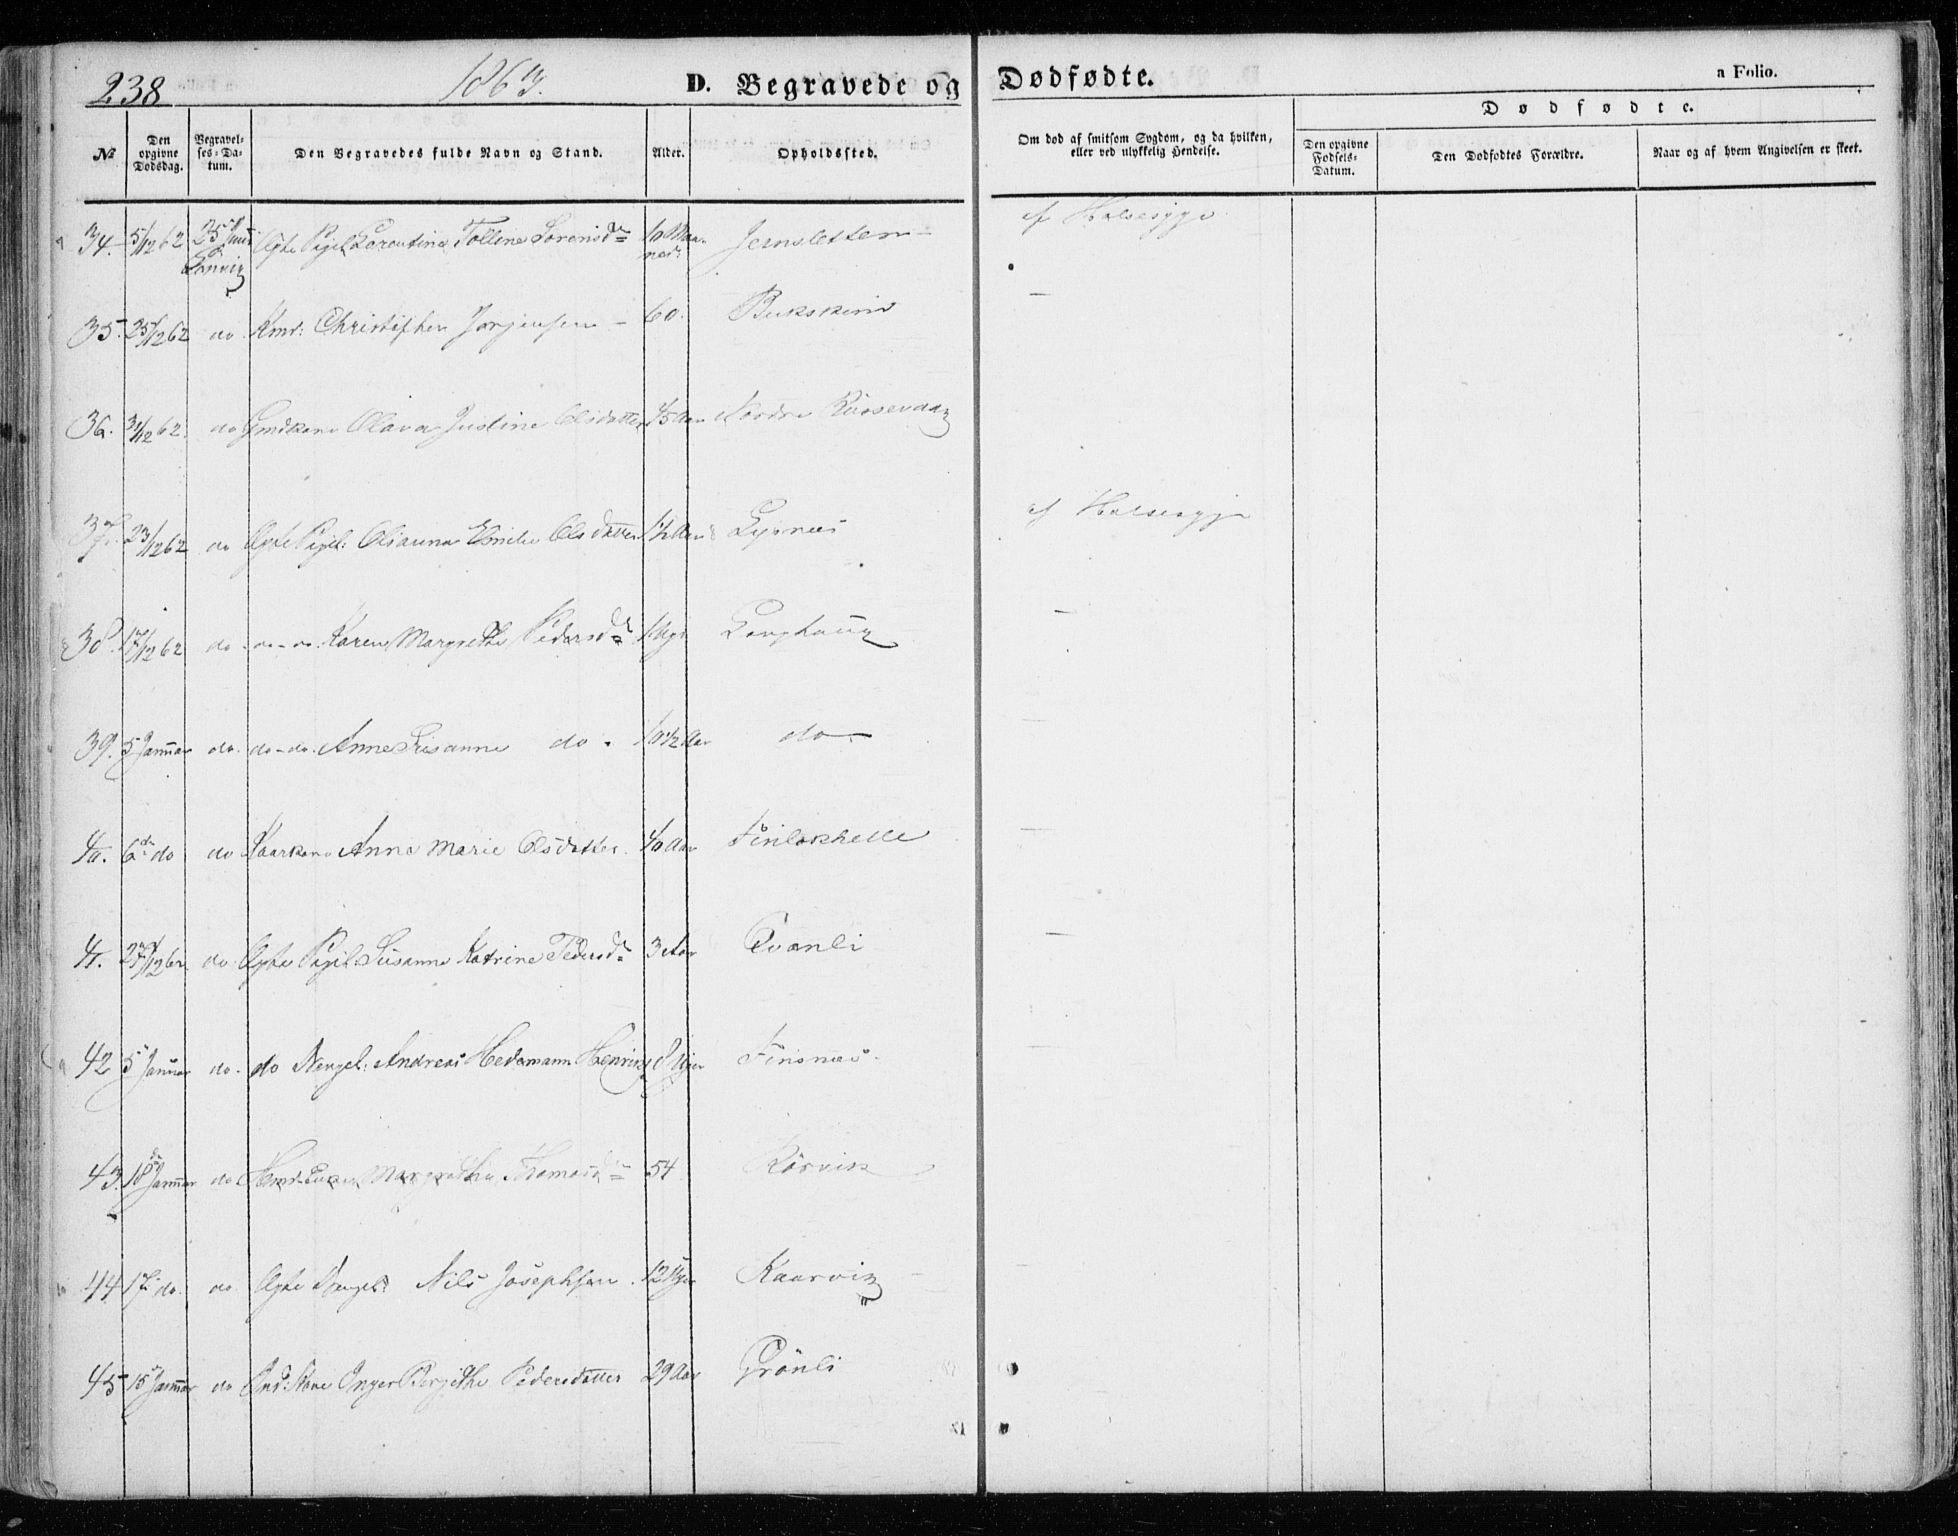 238 1863. D. Begravede og Dødfødte. a Folio.
Dødfødte.
No Den opgivne Dødsdag. Begravelses-Datum. Den Begravedes fulde Navn og Stand. Alder. Opholdssted. Om død af smitsom Sygdom, og da hvilken, eller ved ulykkelig Hendelse. Den opgivne Fødsels-Datum. Den Dødfødtes Forældre. Naar og af hvem Angivelsen er skeet.
34. 5/12 62 25 Lenvig Ægte Pigeb. Lorentina Tolline Sørensdr 10 Maaneder Jernsletten af Halsesyge
35. 25/12 62 do Kmd: Christopher Jørgensen 60. Bukskind —
36. 31/12 62. do Gmdkone Olava Justine Olsdatter 45 Aar Nordre —
37. 23/12 62 do Ægte Pigeb: Olianna Emilie Olsdatter 1 1/2 Aar Lysnes af Halsesyge
38. 17/12 62 do do-do. Karen Margrethe Pedersdr Langhaug —
39. 5 Januar do. do-do. Anne Susanne do. 10 1/2 Aar do —
40. 6de do do Kaarkone Anne Marie Olsdatter. 40 Aar Finlakhelle —
41. 27/12 62 do Ægte Pigeb. Susanne Katrine Pedersdr 3 Aar Qvanli —
42 5 Januar do. do Drengeb: Andreas Hedemann 8 Uger Finsnæs.
43. 18de Januar do Margrethe Thomasdr 54 Rørvik
44 17. do. do. Ægte Drengeb. Nils Josephsen. 12 Uger Kaarvig
45 15 Januar do Ind: Kone Inger Bergithe Pedersdatter 29 Aar Grönli